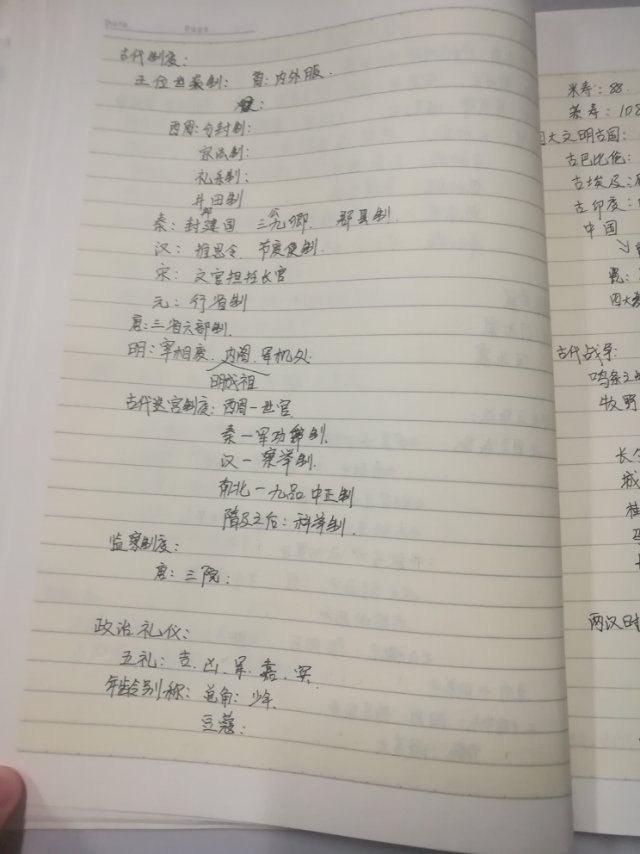 Date Page
古代制度:
王位世袭制: 商:内外服.
西周:分封制:
宗法制:
礼乐制:
井田制
秦:封建国. 三公九卿. 郡县制.
汉:推恩令. 节度使制.
宋:文官担任长官
元:行省制
唐:三省六部制.
明:宰相废. 内阁. 军机处
明成祖
古代选官制度:西周-世官
秦-军功爵制.
汉-察举制.
南北-九品中正制
隋及之后:科举制.
监察制度:
唐:三院:
政治礼仪:
五礼:吉.凶.军.嘉.宾.
年龄别称:总角:少年
豆蔻:
米寿:88.
茶寿:108
大文明古国:
古巴比伦:
古埃及:
古印度:
中国
四大
古代战争:
鸣条之
牧野
长
城
桂
两汉日